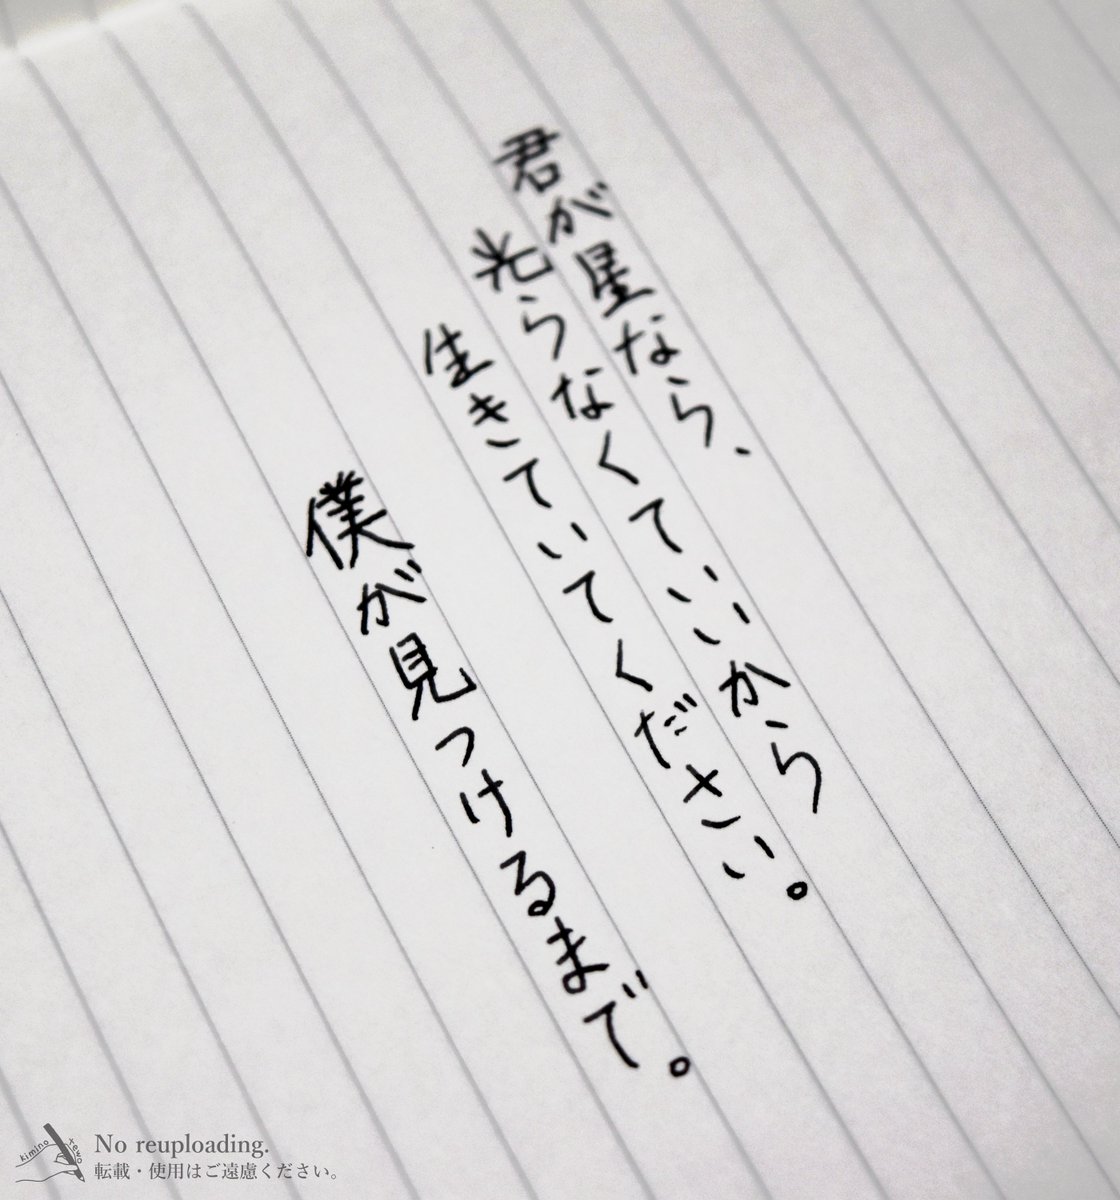 君が星なら、
光らなくていいから
生きていてください。
僕が見つけるまで。
kimino tewo
No reuploading.
転載・使用はご遠慮ください。